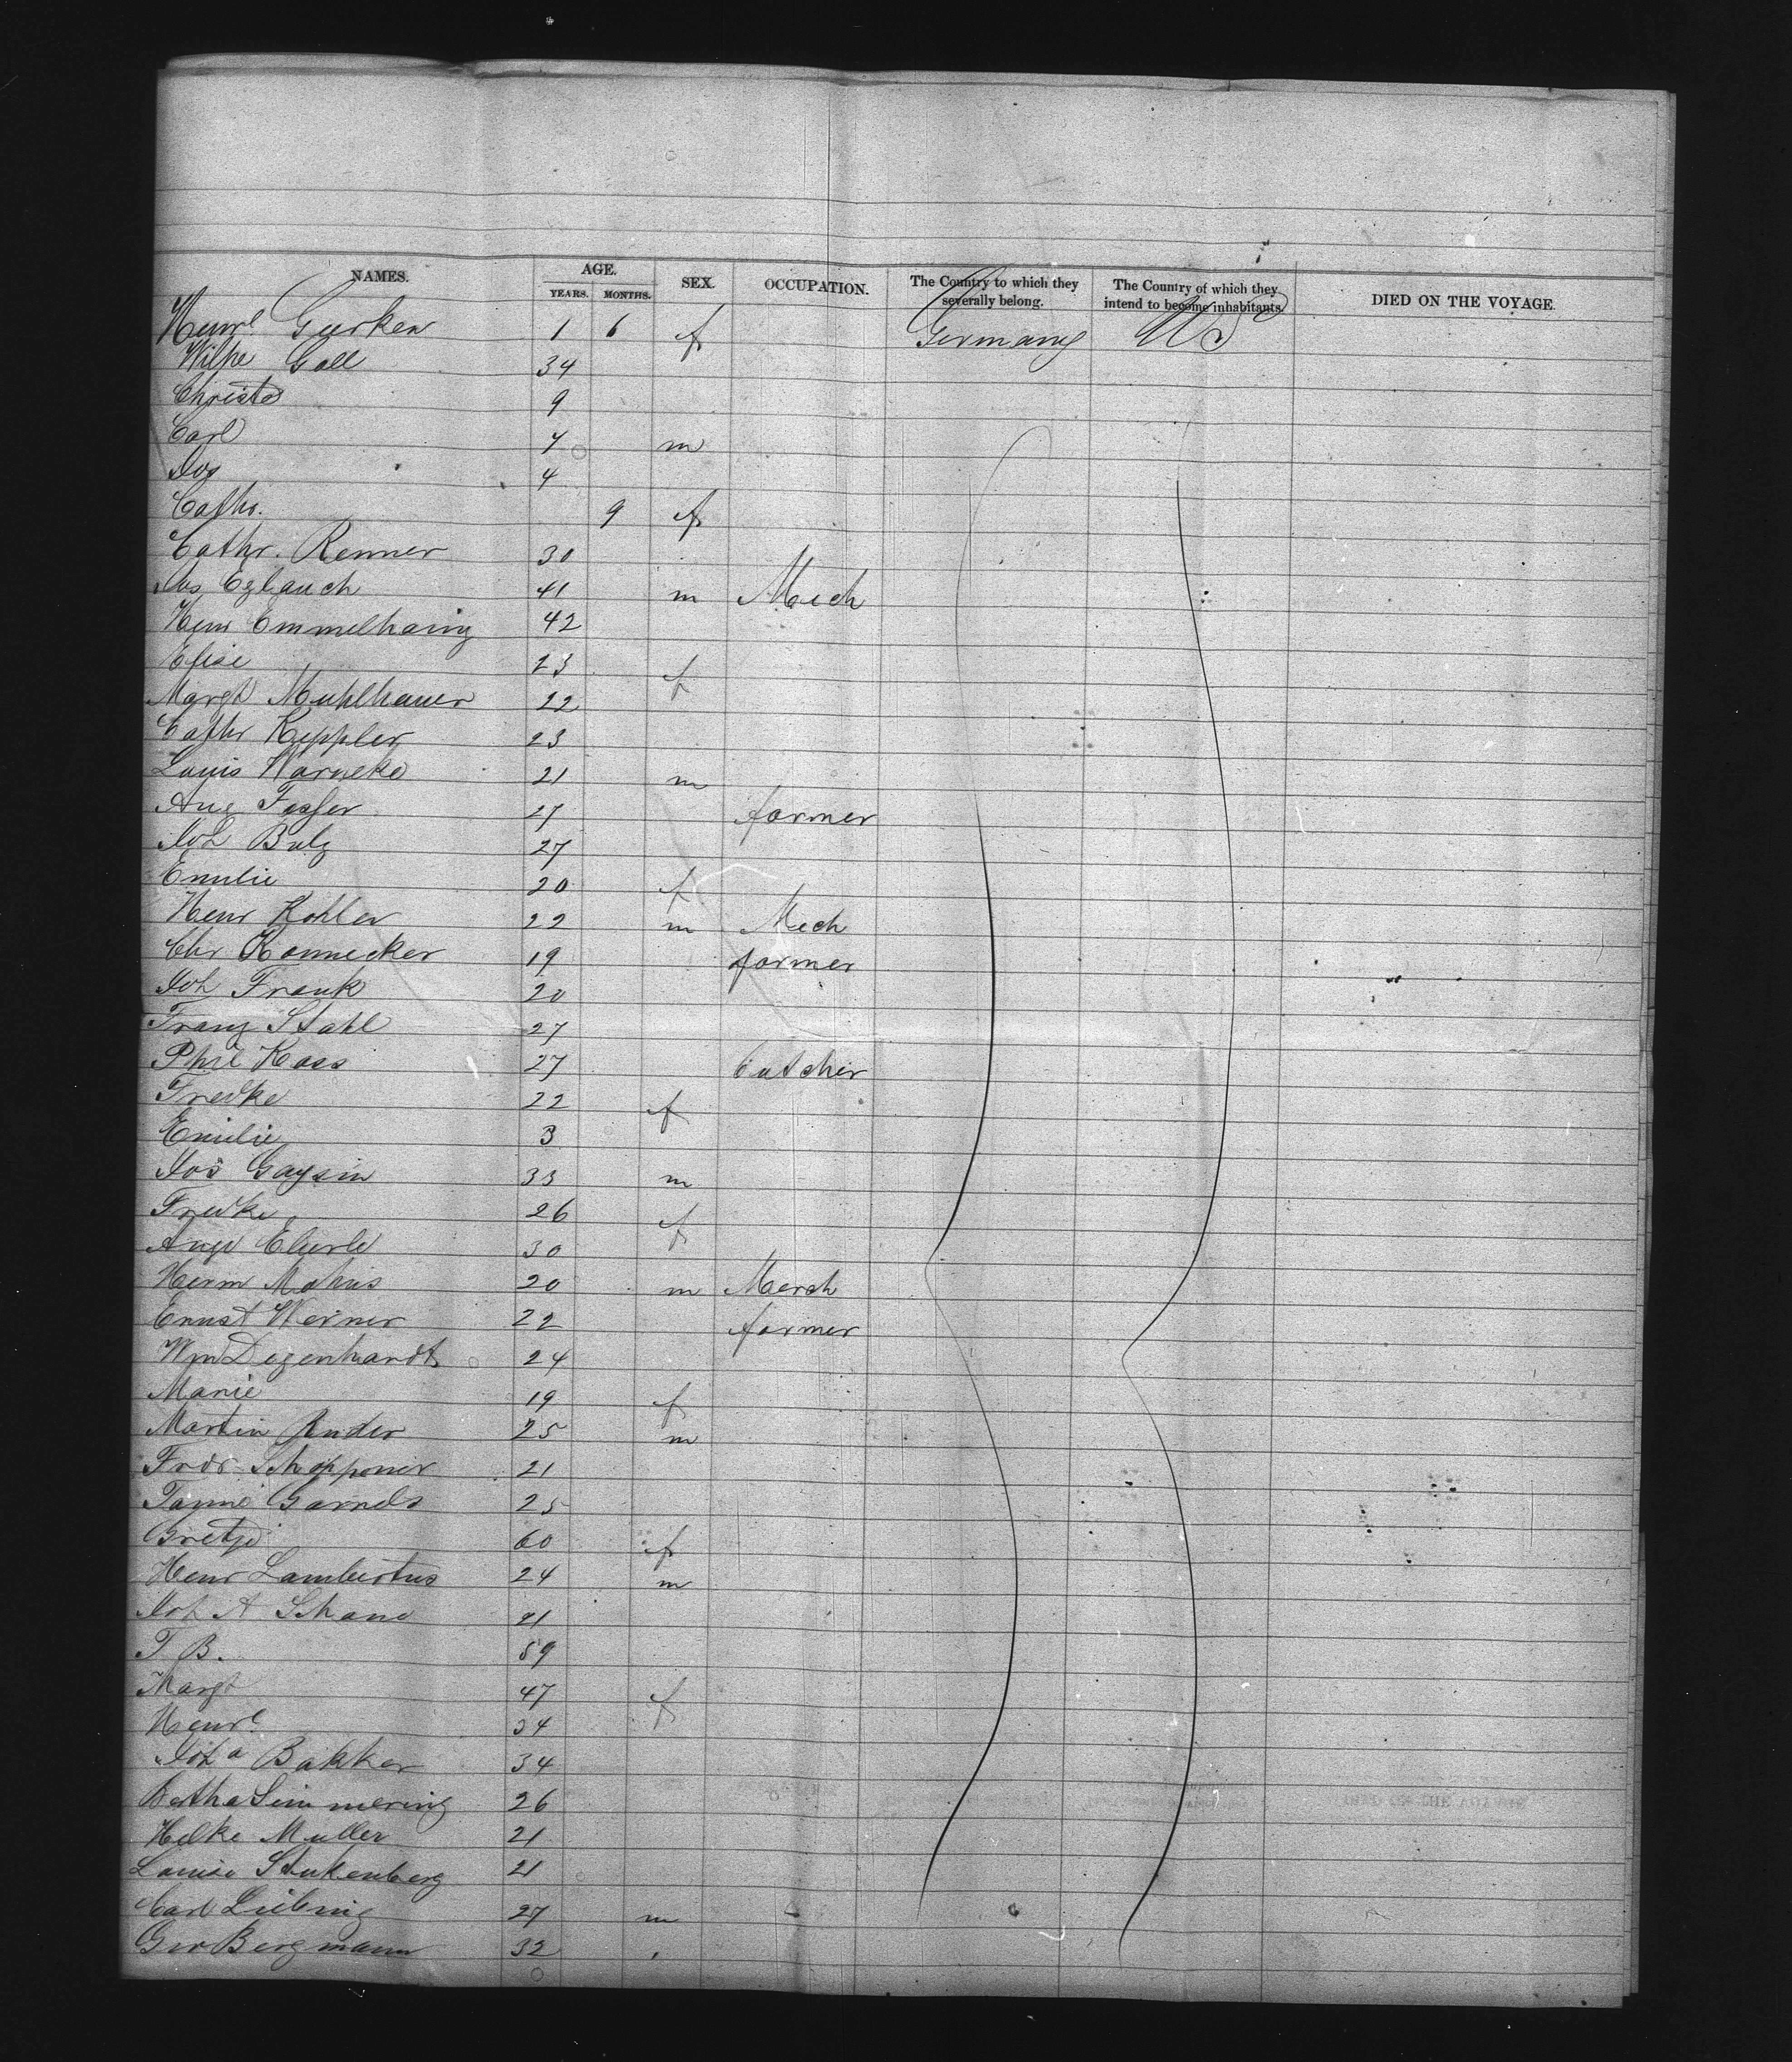 NAMES. AGE. SEX. OCCUPATION. The Country to which they severally belong. The Country of which they intend to become inhabitants. DIED ON THE VOYAGE.
YEARS. MONTHS.
Henre Gerken 1 6 f Germany US
Wilhe Gall 34
Christe 9
Carl 7 m
Jos 4
Cathr. 9 f
Cathr. Renner 30
Jos Ezlauch 41 m Mech
Henr Emmelhainz 42
Elise 23 f
Margt Muhlhauer 22
Cathr Keppler 23
Louis Warneke 21 m
Aug Fesser 27 farmer
Joh Bulz 27
Emilie 20 f
Henr Kohler 22 m Mech
Chr Konnecker 19 farmer
Joh Frank 20
Franz Stahl 27
Phil Kass 27 butcher
Fredke 22 f
Emilie 3
Jos Gaysin 33 m
Fredke 26 f
Ange Eberle 30
Herm Mohns 20 m Merch
Ernst Werner 22 farmer
Wm Degenhardt 24
Marie 19 f
Martin 25 m
Fredr Schopponer 21
Tanno Garnels 25
Gretje 60 f
Henr Lambertus 24 m
Joh A 21
T B. 59
Margt 47 f
Henre 34
Joha Bakker 34
Betha Simmering 26
Helke Muller 21
Louise Stukenberg 21
Carl Liebing 27 m
Geo Bergmann 32